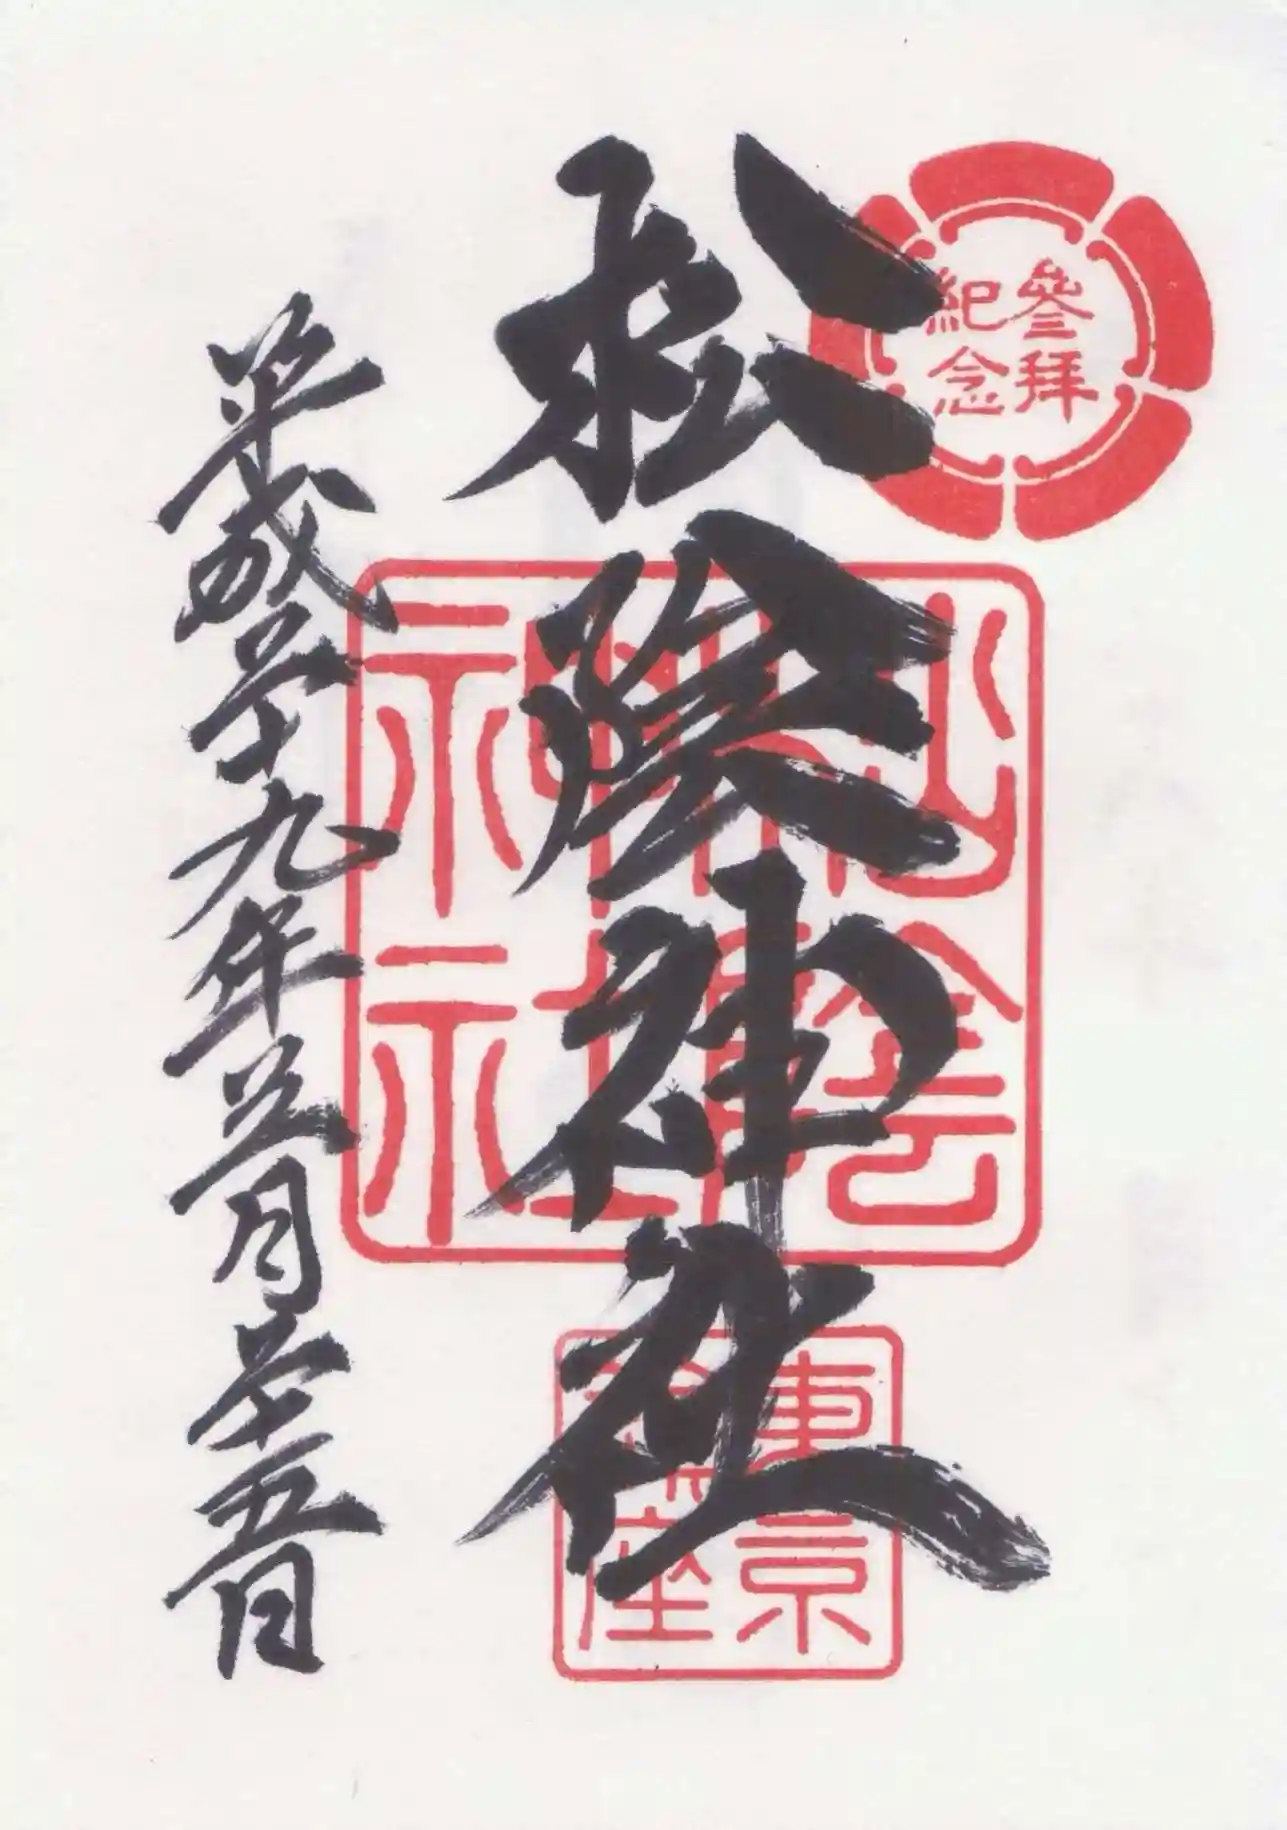 參拜
紀念
松陰神社
松陰
神社
東京
鎮座
平成二十九年三月二十五日